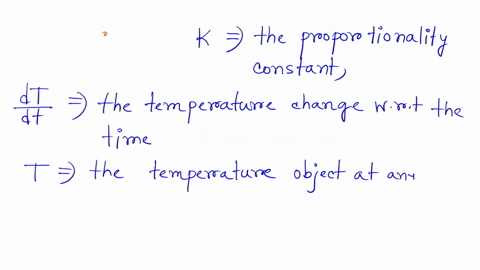 K ⇒ the proporotionality
constant,
dT/dt ⇒ the temperature change w.r.t the
time
T ⇒ the temperature object at any